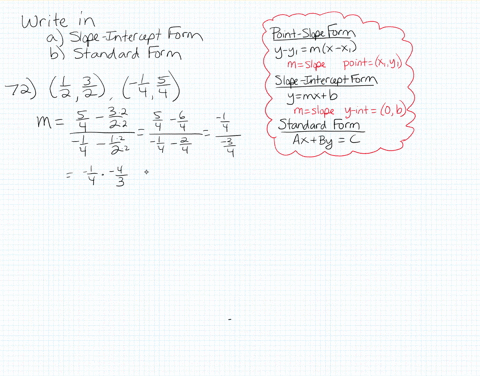 Write in
a) Slope-Intercept Form
b) Standard Form
72) (1/2, 3/2), (-1/4, 5/4)
m = (5/4 - 3·2/2·2)/(-1/4 - 1·2/2·2) = (5/4 - 6/4)/(-1/4 - 2/4) = (-1/4)/(-3/4)
= -1/4 · -4/3
Point-Slope Form
y-y₁ = m(x-x₁)
m=slope point=(x₁,y₁)
Slope-Intercept Form
y=mx+b
m=slope y-int=(0,b)
Standard Form
Ax+By=C